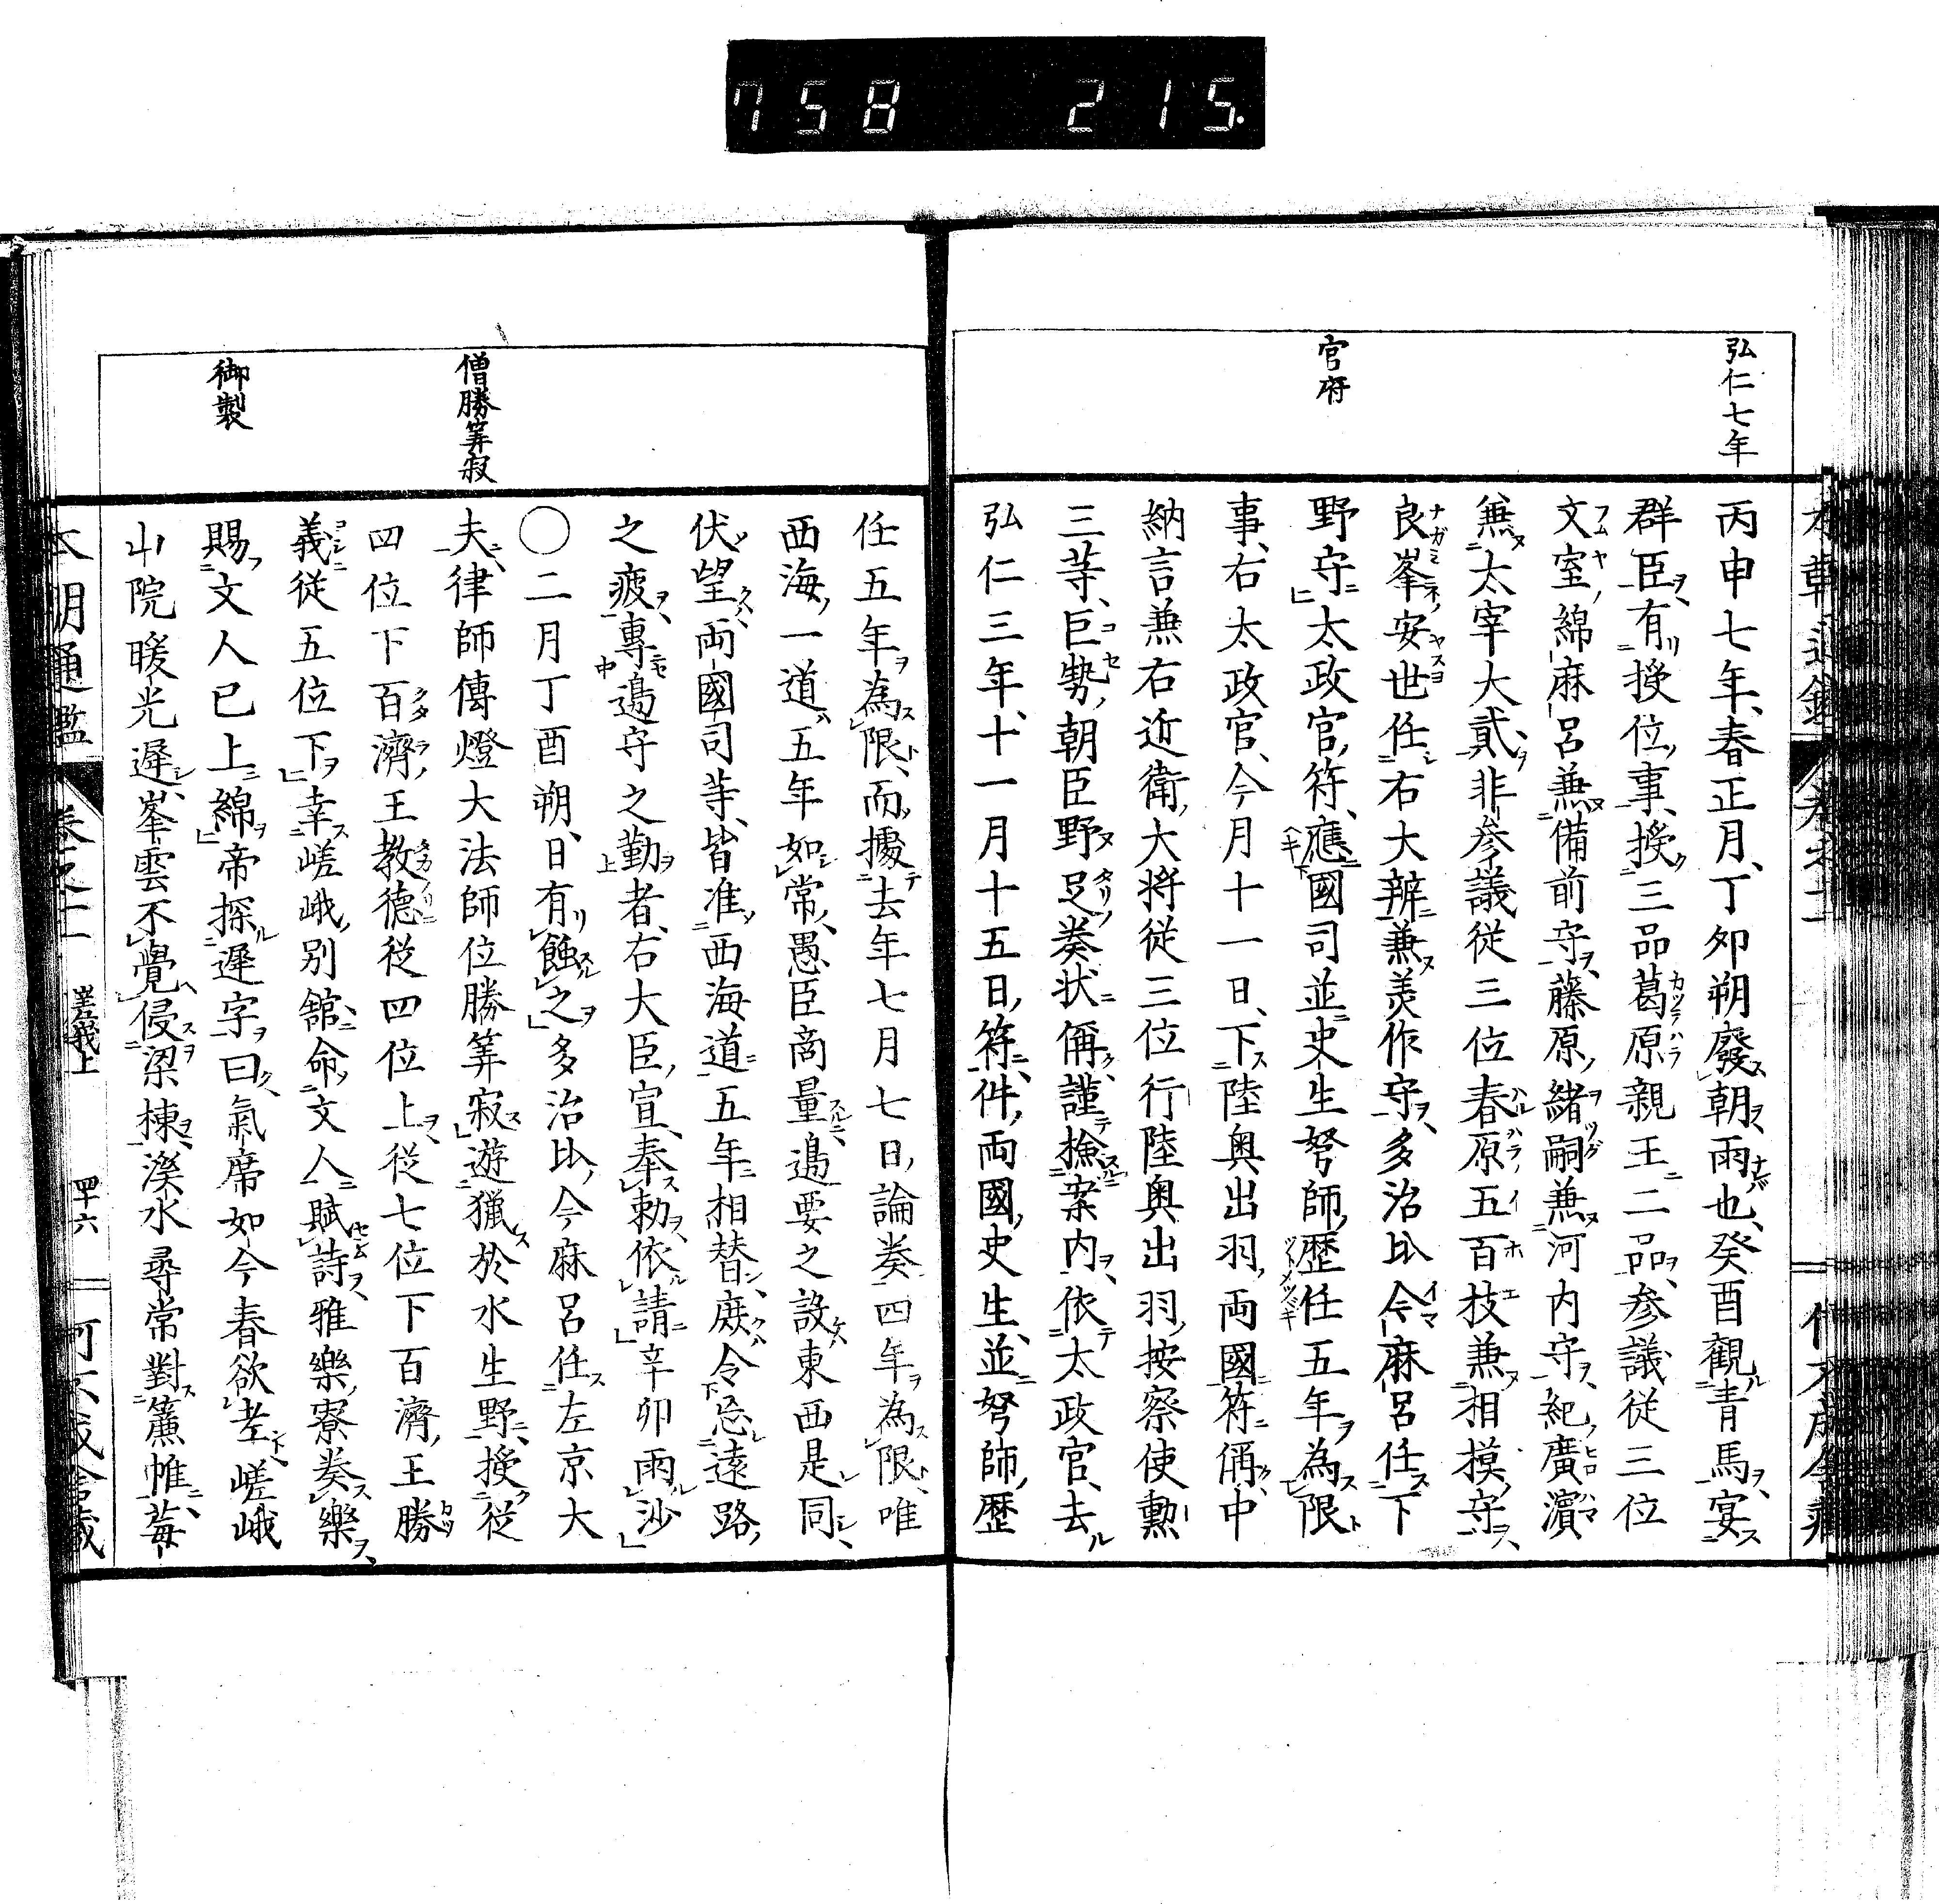 758 215.
弘仁七年
官府
丙申七年、春正月、丁夘朔廢朝、雨也、癸酉觀青馬、宴
群臣、有授位事、授三品葛原親王二品、参議從三位
文室綿麻呂兼備前守、藤原緒嗣兼河内守、紀廣濵
兼太宰大貳、非参議從三位春原五百枝兼相摸守、
良峯安世任右大辨、兼美作守、多治比今麻呂任下
野守、太政官符、應國司並史生弩師歴任五年為限
事、右太政官、今月十一日、下陸奥出羽兩國符偁、中
納言兼右近衛大将從三位行陸奥出羽按察使勲
三等、巨勢朝臣野足奏状偁、謹撿案内、依太政官、去
弘仁三年、十一月十五日符、件兩國史生、並弩師、歴
僧勝筭寂
御製
任五年為限、而據去年七月七日論奏、四年為限、唯
西海一道、五年如常、愚臣商量、邊要之設、東西是同、
伏望、兩國司等、皆准西海道、五年相替、庶令忘遠路
之疲、專邊守之勤者、右大臣宣、奉勅依請、辛卯雨沙
○二月丁酉朔、日有蝕之、多治比今麻呂任左京大
夫、律師傳燈大法師位勝筭寂、遊獵於水生野、授從
四位下百濟王教德從四位上、從七位下百濟王勝
義從五位下、幸嵯峨別舘、命文人賦詩、雅樂寮奏樂、
賜文人已上綿、帝探遲字曰、氣席如今春欲老、嵯峨
山院暖光遲、峯雲不覺侵梁棟、溪水尋常對簾帷、莓
本朝通鑑 卷之二 嵯峨上 四十六